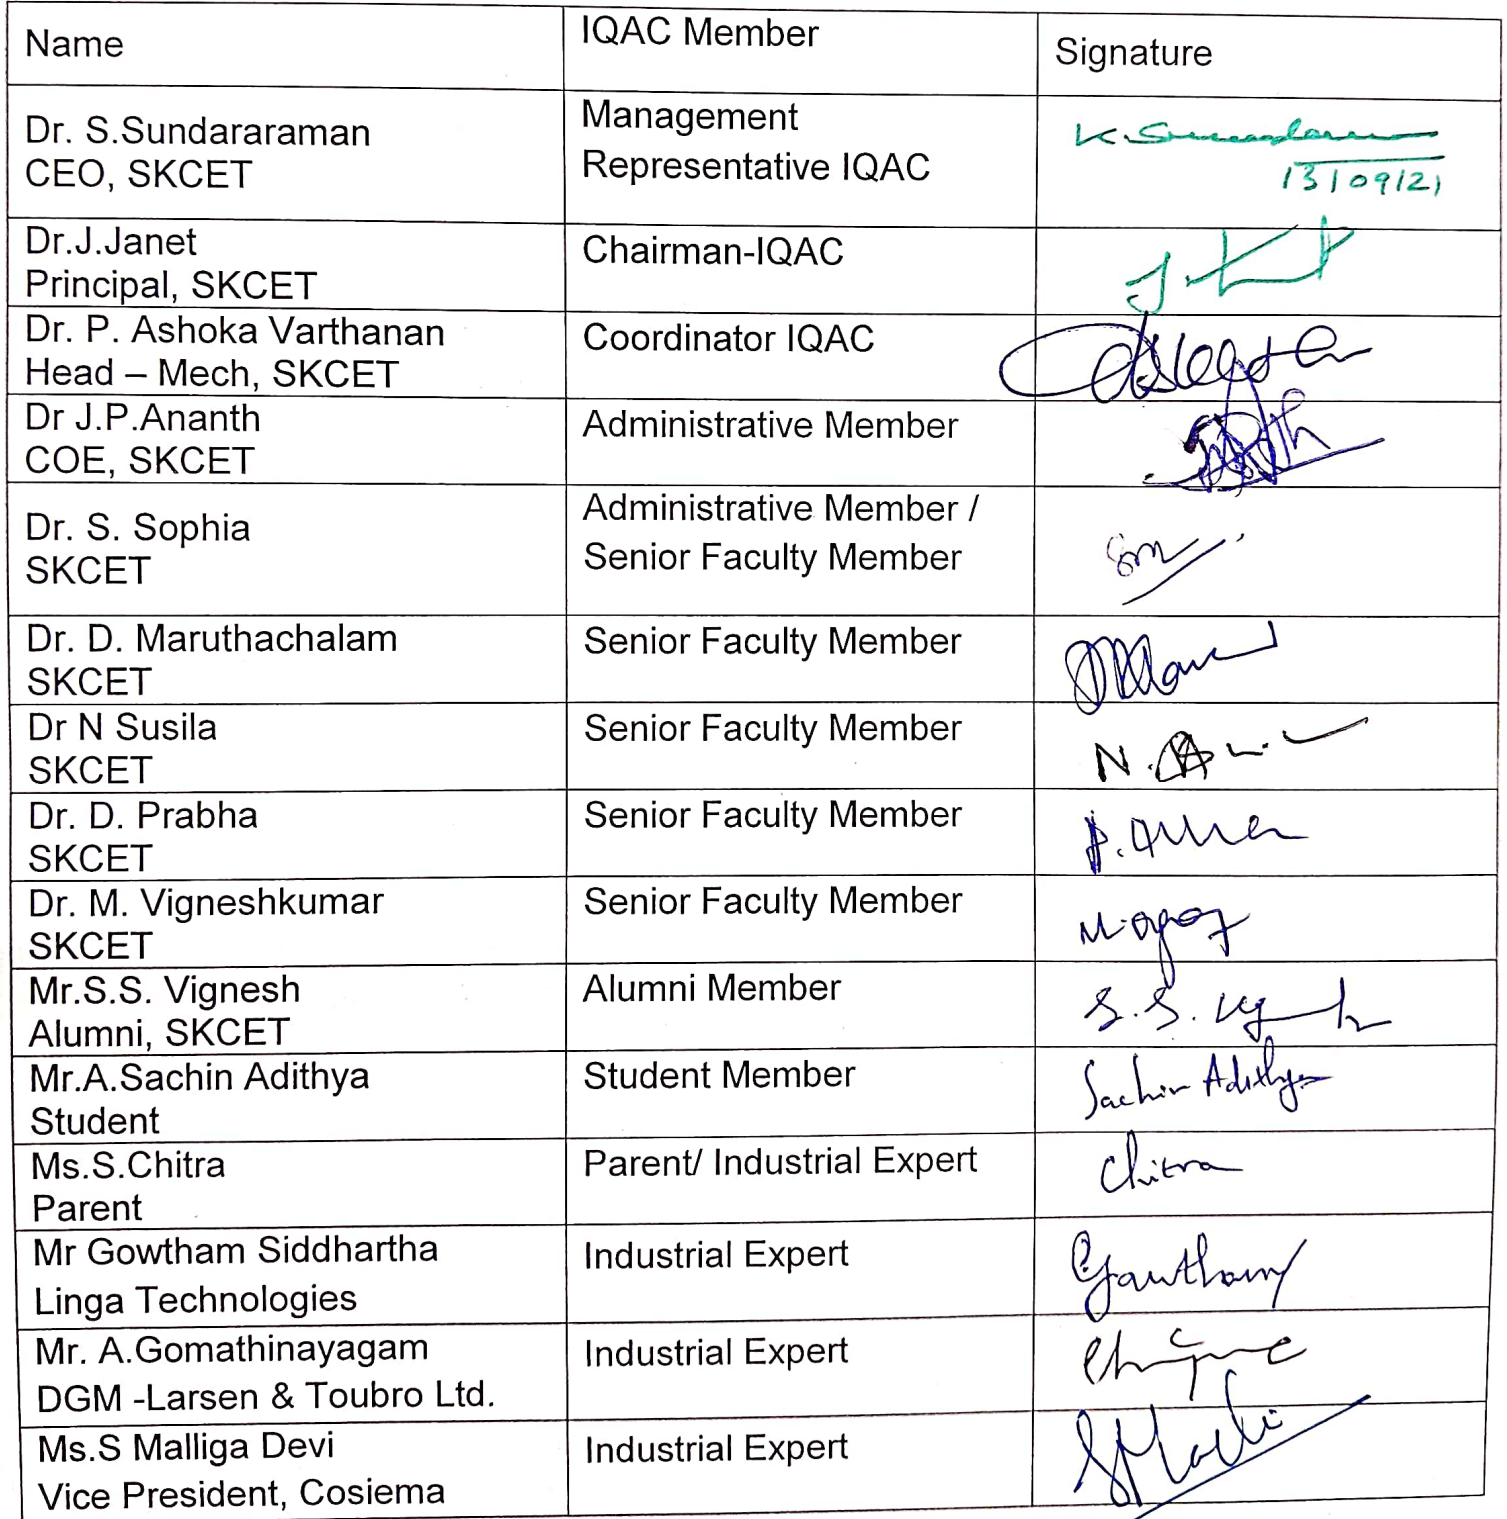 Name
IQAC Member
Signature
Dr. S.Sundararaman
CEO, SKCET
Management
Representative IQAC
13/09/21
Dr.J.Janet
Principal, SKCET
Chairman-IQAC
Dr. P. Ashoka Varthanan
Head – Mech, SKCET
Coordinator IQAC
Dr J.P.Ananth
COE, SKCET
Administrative Member
Dr. S. Sophia
SKCET
Administrative Member /
Senior Faculty Member
Dr. D. Maruthachalam
SKCET
Senior Faculty Member
Dr N Susila
SKCET
Senior Faculty Member
Dr. D. Prabha
SKCET
Senior Faculty Member
Dr. M. Vigneshkumar
SKCET
Senior Faculty Member
Mr.S.S. Vignesh
Alumni, SKCET
Alumni Member
Mr.A.Sachin Adithya
Student
Student Member
Sachin Adithya
Ms.S.Chitra
Parent
Parent/ Industrial Expert
Chitra
Mr Gowtham Siddhartha
Linga Technologies
Industrial Expert
Mr. A.Gomathinayagam
DGM -Larsen & Toubro Ltd.
Industrial Expert
Ms.S Malliga Devi
Vice President, Cosiema
Industrial Expert